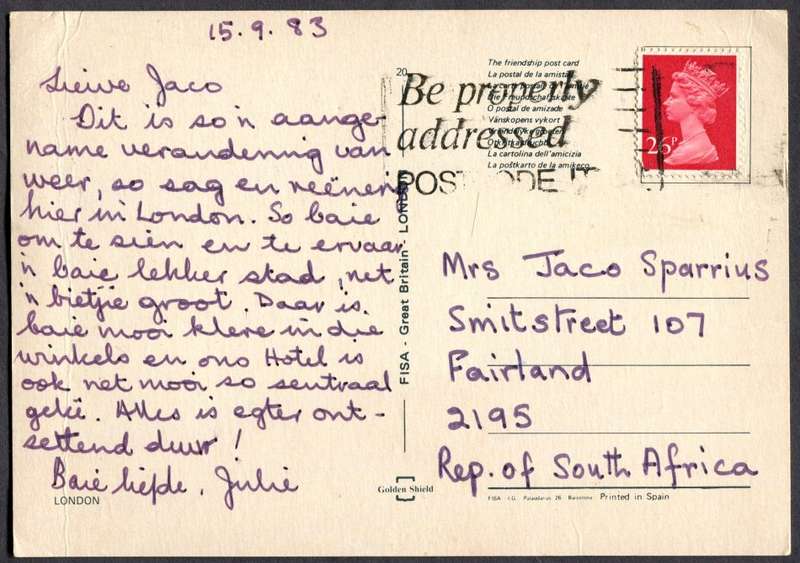 15.9.83
Lieive Jaco
Dit is so'n aange-
name verandering van
weer, so sag en reënerig
hier in London. So baie
om te sien en te ervaar
'n baie lekker stad, net
'n bietjie groot. Daar is
baie mooi klere in die
winkels en ons Hotel is
ook net mooi so sentraal
geleë. Alles is egter ont-
settend duur!
Baie liefde, Julie
LONDON
20
FISA - Great Britain - LONDON
Golden Shield
The friendship post card
La postal de la amistad
O postal de amizade
Vänskopens vykort
La cartolina dell'amicizia
Be properly
addressed
POSTCODE IT
26P
Mrs Jaco Sparrius
Smitstreet 107
Fairland
2195
Rep. of South Africa
FISA I.G. Palaudarias 26 Barcelona Printed in Spain